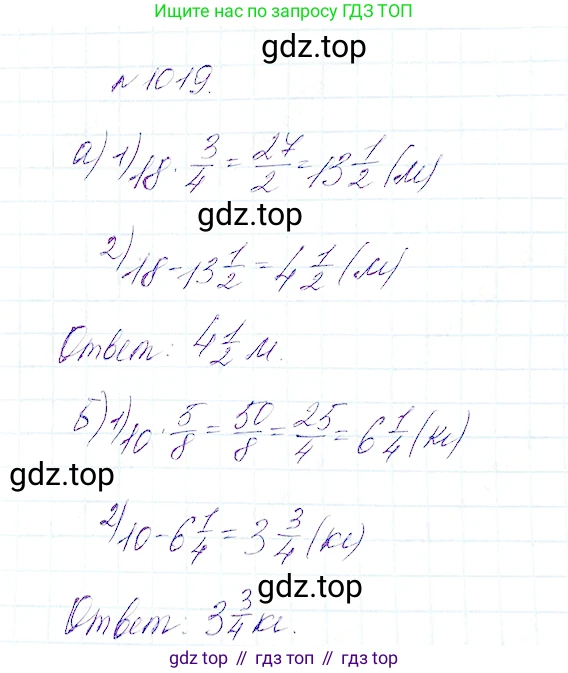 Ищите нас по запросу ГДЗ ТОП
gdz.top
№ 1019.
а) 1) 18 · 3/4 = 27/2 = 13 1/2 (м)
gdz.top
2) 18 - 13 1/2 = 4 1/2 (м)
Ответ: 4 1/2 м.
Б) 1) 10 · 5/8 = 50/8 = 25/4 = 6 1/4 (кг)
gdz.top
2) 10 - 6 1/4 = 3 3/4 (кг)
gdz.top
Ответ: 3 3/4 кг.
gdz top // гдз топ // гдз.top